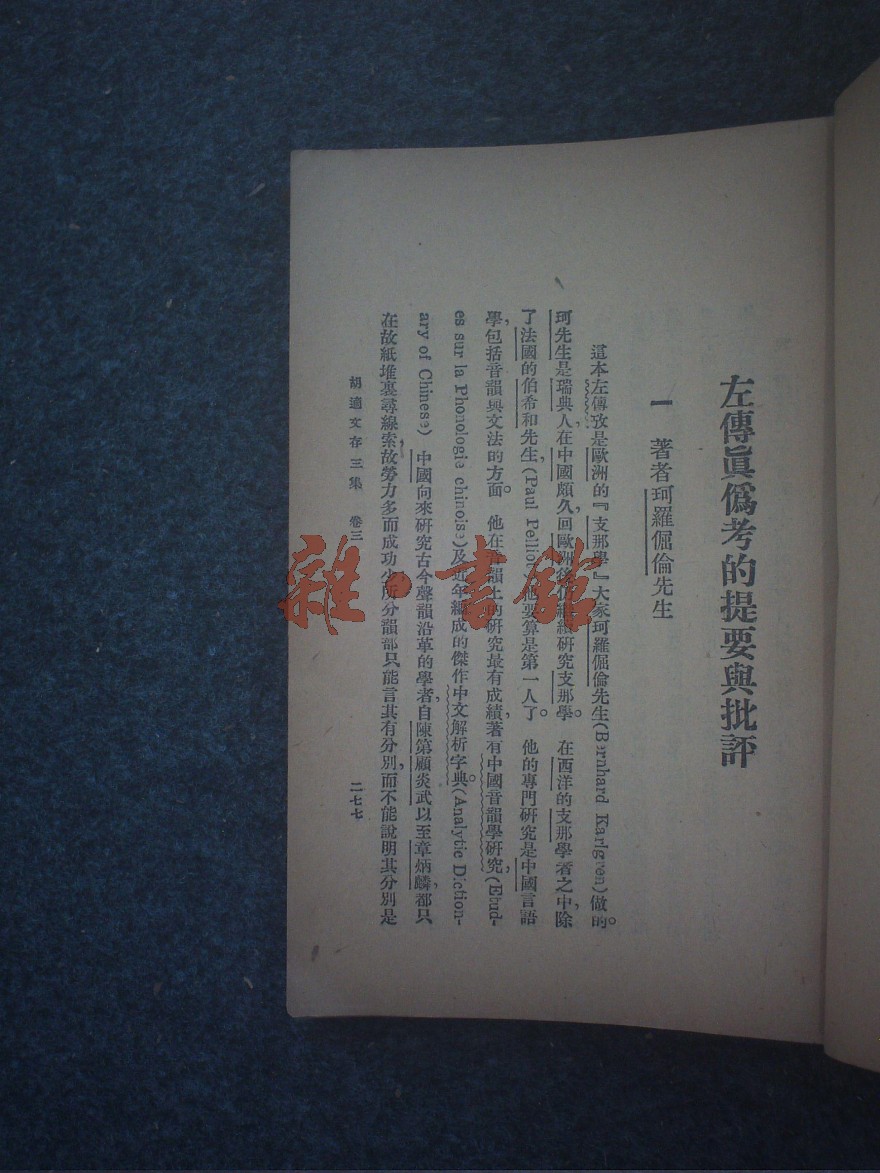 左傳眞僞考的提要與批評
一 著者珂羅倔倫先生
這本左傳攷是歐洲的『支那學』大家珂羅倔倫先生(Bernhard Karlgren)做的。
珂先生是瑞典人,在中國頗久,回歐洲後仍繼續研究支那學。 在西洋的支那學者之中,除
了法國的伯希和先生(Paul Pelliot 他要算是第一人了。 他的專門研究是中國言語
學,包括音韻與文法的方面。 他在音韻上的研究最有成績,著有中國音韻學研究(Etud-
es sur la Phonologie chinoise)及近年編成的傑作中文解析字典。(Analytic Diction-
ary of Chinese) 中國向來研究古今聲韻沿革的學者,自陳第顧炎武以至章炳麟,都只
在故紙堆裏尋線索,故勞力多而成功少,所分韻部只能言其有分別,而不能說明其分別是
胡適文存三集 卷三 二七七
雜·書館